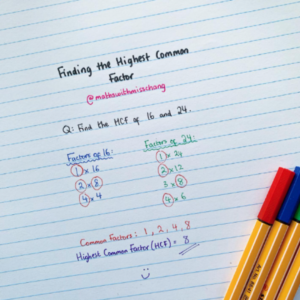 Finding the Highest Common
Factor
@mathswithmisschang
Q: Find the HCF of 16 and 24.
Factors of 16:
1 x 16
2 x 8
4 x 4
Factors of 24:
1 x 24
2 x 12
3 x 8
4 x 6
Common Factors: 1, 2, 4, 8
Highest Common Factor (HCF) = 8